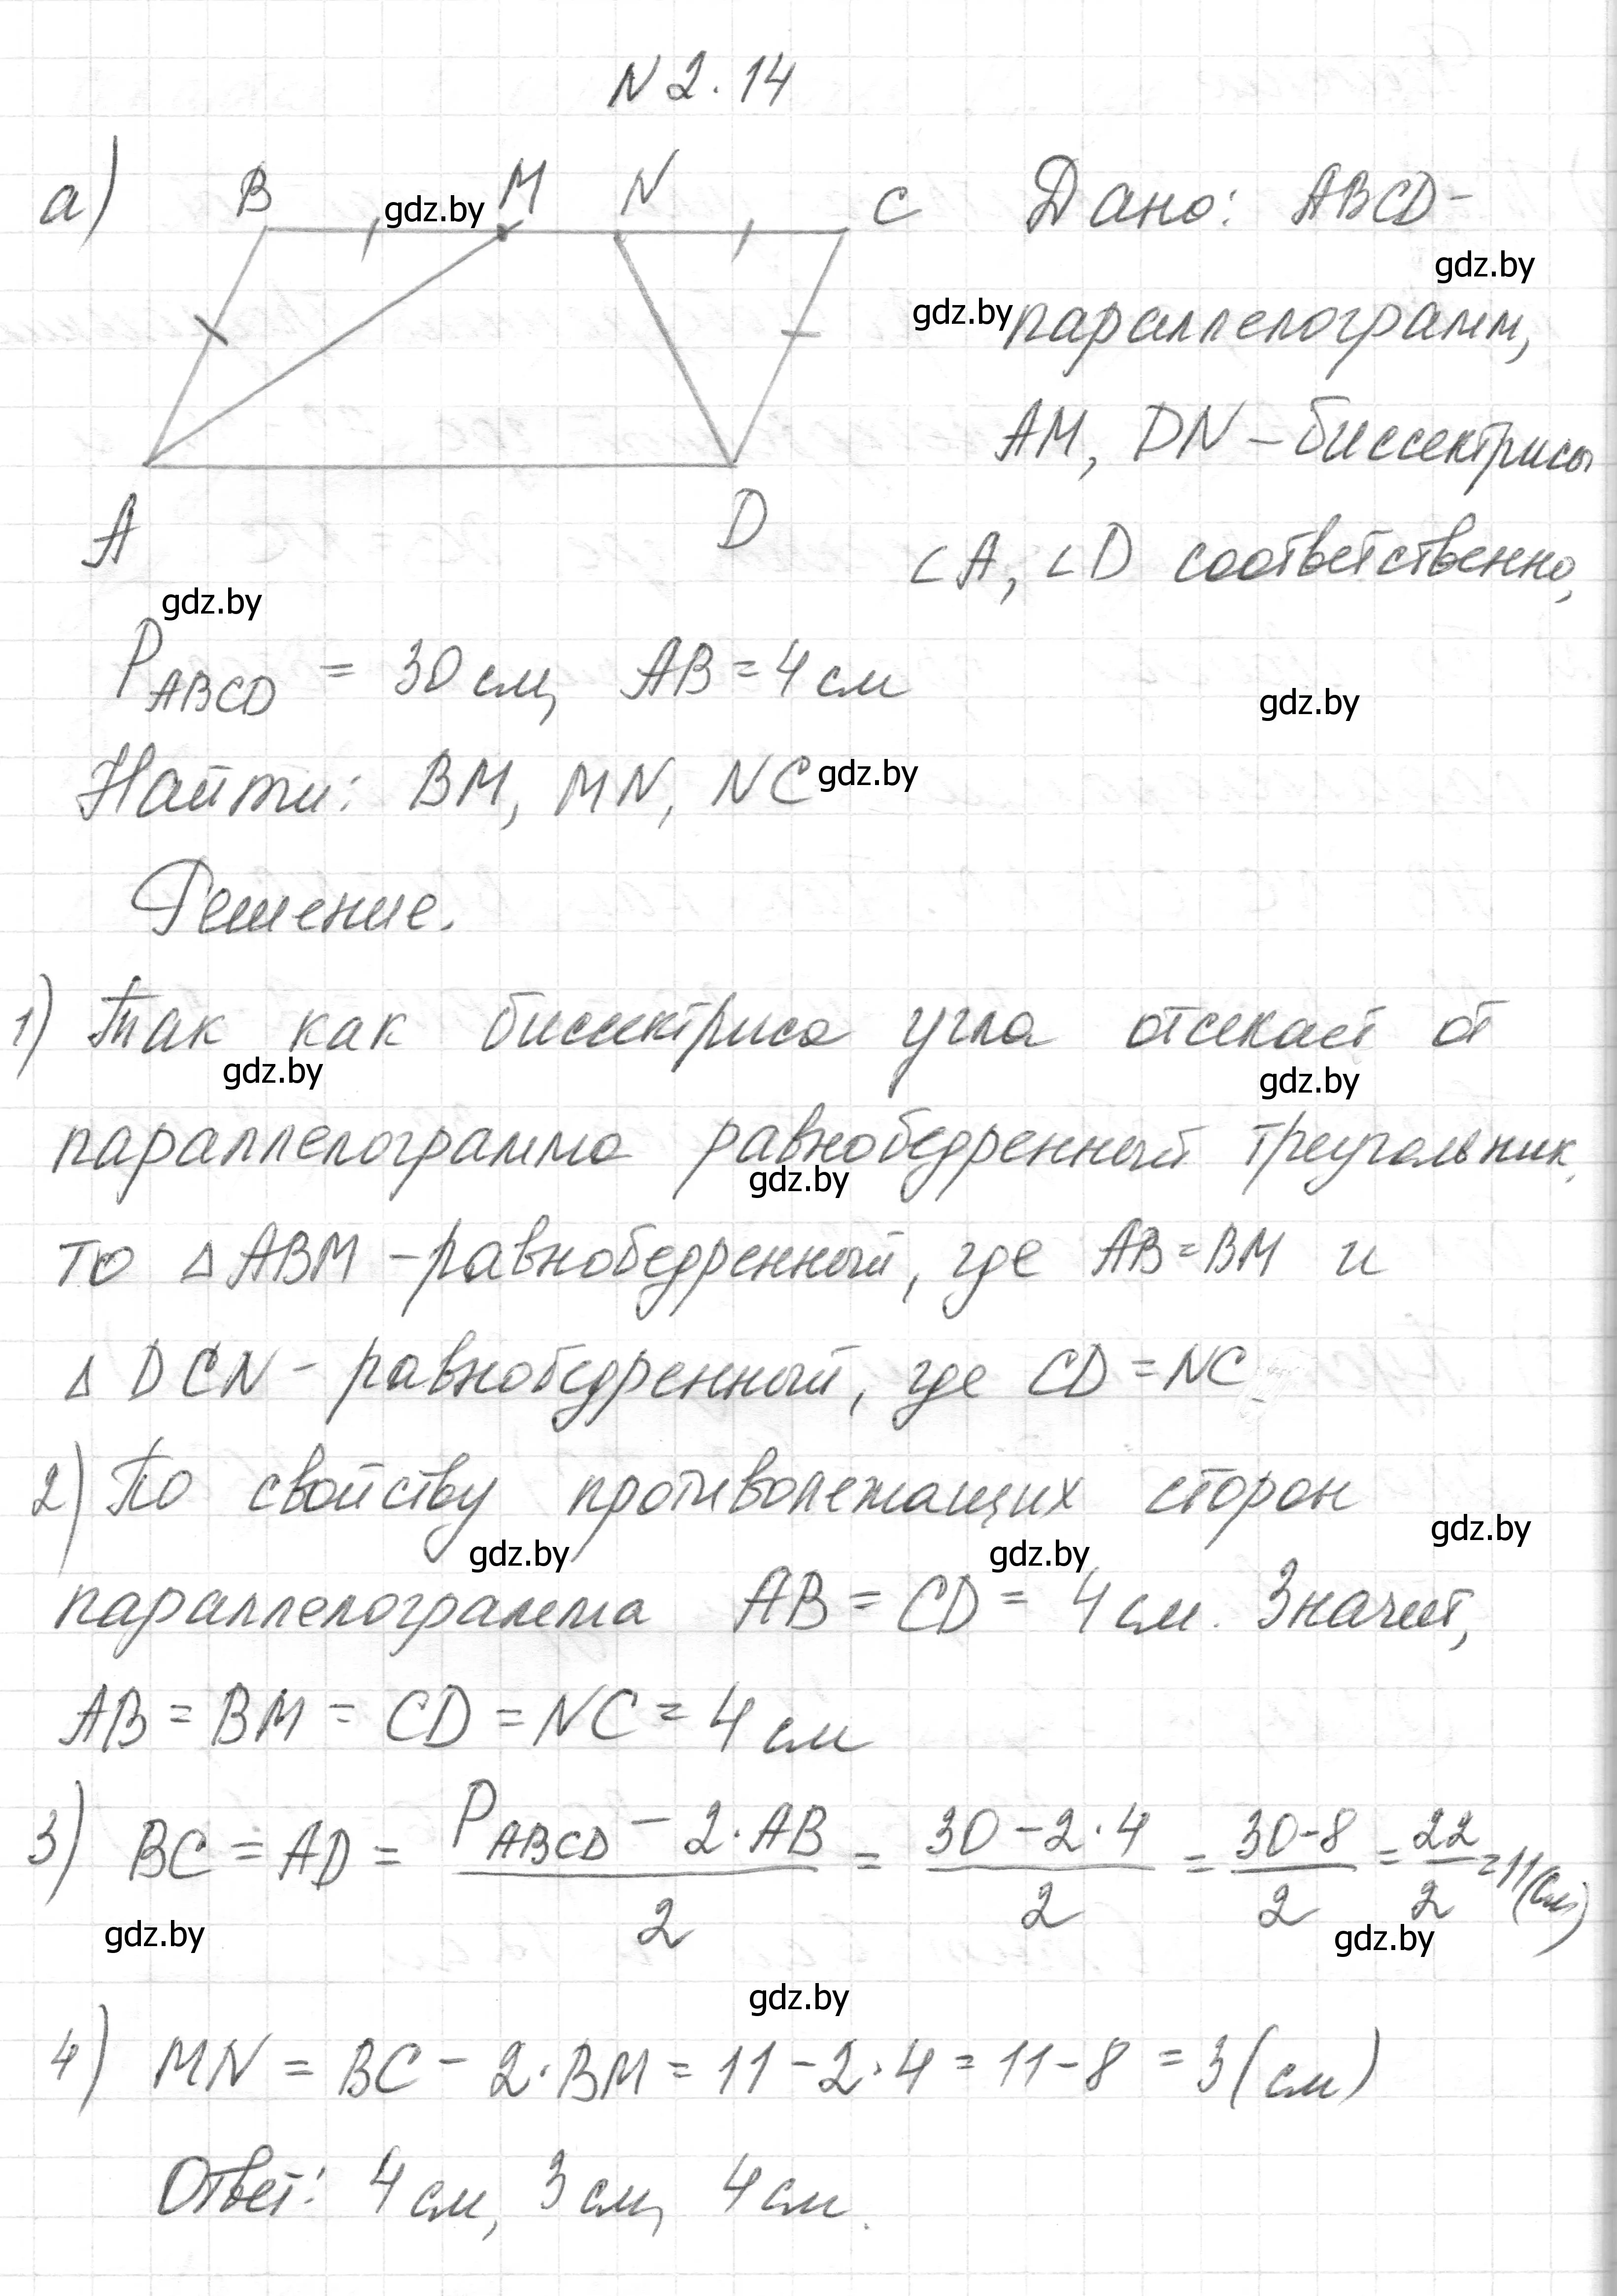 N 2.14
а) B gdz.by M N C Дано: ABCD-
gdz.by
gdz.by параллелограмм,
AM, DN – биссектрисы
A D ∠A, ∠D соответственно,
gdz.by
P_ABCD = 30 см, AB = 4 см
gdz.by
Найти: BM, MN, NC gdz.by
Решение.
1) Так как биссектриса угла отсекает от
gdz.by gdz.by
параллелограмма равнобедренный треугольник,
gdz.by
то △ABM – равнобедренный, где AB = BM и
△DCN – равнобедренный, где CD = NC
2) По свойству противолежащих сторон
gdz.by gdz.by gdz.by
параллелограмма AB = CD = 4 см. Значит,
AB = BM = CD = NC = 4 см
3) BC = AD = (P_ABCD – 2·AB)/2 = (30 – 2·4)/2 = (30-8)/2 = 22/2 = 11 (см)
gdz.by gdz.by
gdz.by
4) MN = BC – 2·BM = 11 – 2·4 = 11 – 8 = 3 (см)
Ответ: 4 см, 3 см, 4 см.